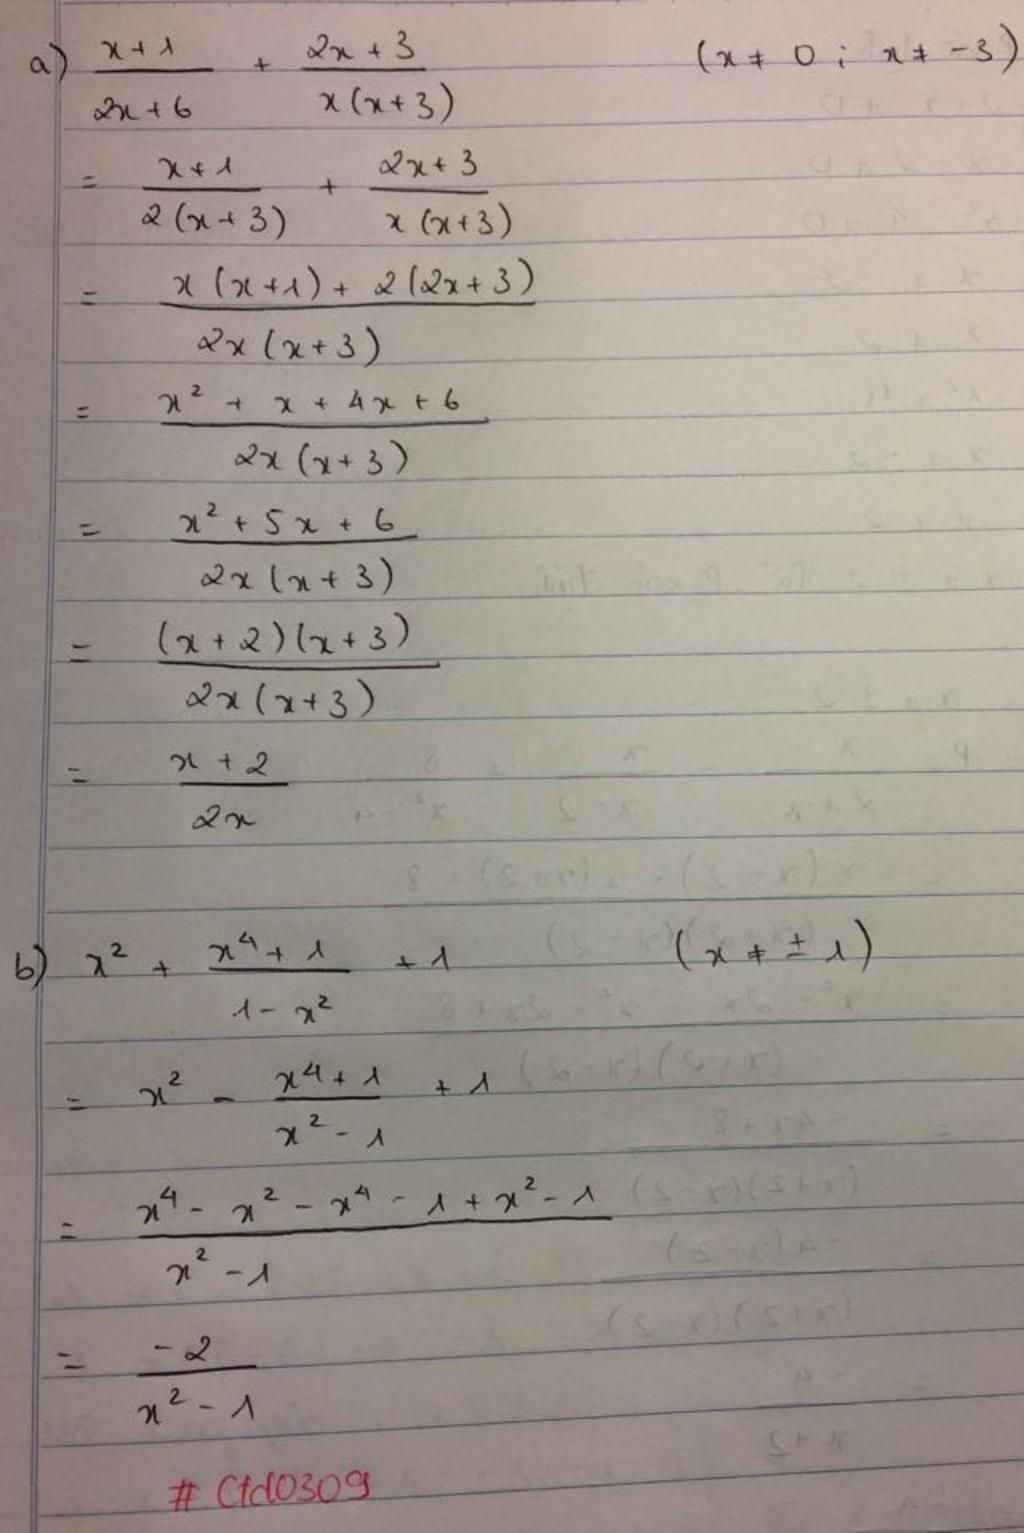 a) (x+1)/(2x+6) + (2x+3)/(x(x+3)) (x ≠ 0 ; x ≠ -3)
= (x+1)/(2(x+3)) + (2x+3)/(x(x+3))
= (x(x+1) + 2(2x+3))/(2x(x+3))
= (x² + x + 4x + 6)/(2x(x+3))
= (x² + 5x + 6)/(2x(x+3))
= ((x+2)(x+3))/(2x(x+3))
= (x+2)/(2x)
b) x² + (x⁴+1)/(1-x²) + 1 (x ≠ ± 1)
= x² - (x⁴+1)/(x²-1) + 1
= (x⁴ - x² - x⁴ - 1 + x² - 1)/(x²-1)
= (-2)/(x²-1)
# Ctd0309